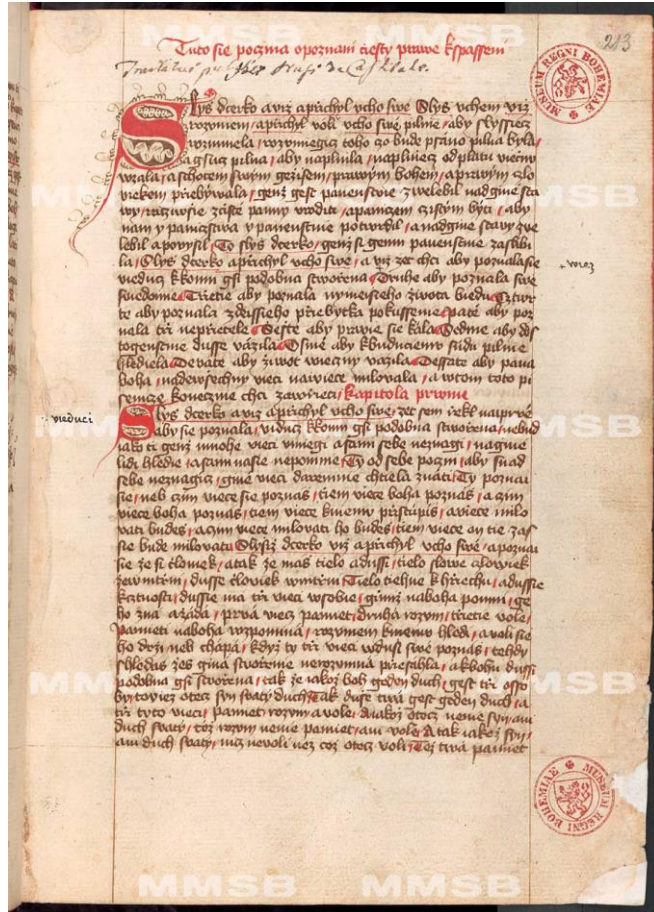 213
Tuto sie poczina o poznani ciesty prawe k spasseni
Slys dcerko a viz a prichyl vcho swe Slys vchem viz
rozumem / a prichyl voli vcho swe pilnie / aby slyssiec
rozumnela / rozumiegic toho czo bude psano pilna byla /
a gsuc pilna / aby naplnila / naplniec odplatu viecznu
wzala / a s chotem swym gezisem / prawym bohem / a prawym czlo
wiekem przebywala / genz gest panenstwie zwelebil nad gine sta
wy / 
nam y paniczstwa y panenstwie potwrdil / a nad gine stawy zwe
lebil a powysil / To slys dcerko / genz si gemu panenstwie zaslibi
la / Slys dcerko a prichyl vcho swe / a viz zet chci aby poznala sie
vieduc k komu gsi podobna stworzena / Druhe aby poznala swe
swiedomie / Trzetie aby poznala nynieisieho zivota biedu / Cztwr
te aby poznala zdeissieho przebytka pokussenie / pate aby poz
nala trzi neprzietele / Seste aby prawie sie kala / Sedme aby dos
togenstwie dusse vazila / Osme aby k buduciemu sudu pilnie
hlediela / Dewate aby ziwot wieczny vazila / Dessate aby pana
boha / nadewsechny vieci nawiece milowala / a w tom toto pi
semcze konecznie chci zawrzieti / kapitola prwnie
vieduci
Slys dcerko a viz a prichyl vcho swe / zet sem rzekl naiprwe
aby sie poznala / viduc k komu gsi podobna stworzena / nebud
iako ti genz mnohe vieci vmiegi a sami sebe neznagi / na gine
lidi hledie / a sami na sie nepomnie / Ty od sebe poczni / aby snad
sebe neznagic / gine vieci daremnie chtiela znati / Ty poznai
sie / neb czim viece sie poznas / tiem viece boha poznas / a czim
viece boha poznas / tiem viece k niemu przistupis / a viece milo
vati budes / a czim viece milovati ho budes / tiem viece on tie zas
sie bude milovati / Slysiz dcerko viz a prichyl vcho swe / a poznai
sie ze si clowek / a tak ze mas tielo a dussi / tielo slowe czlowiek
zewnitrzni / dusse clowiek wnitrzni / Tielo tiehne k hrziechu / a dussie
k ctnosti / dussie ma trzi vieci w sobie / gimiz na boha pomni / ge
ho zna a zada / prva viecz pamiet / druha rozum / trzetie vole /
pamieti na boha wzpomina / rozumem k niemu hledi / a voli sie
ho drzi neb chapa / kdyz ty trzi vieci w dusi swe poznas / tehdy
shledas zes gina stworzenie nerozumna przesahla / a k bohu dussi
podobna gsi stworzena / tak ze iakoz boh geden duch / gest trzi osso
by toviez otecz syn swaty duch / Tak duse twa gest geden duch / a
trzi tyto vieci / pamiet rozum a vole / A iakoz otecz nenie syn / ani
duch swaty / tez rozum nenie pamiet / ani vole / A tak iakoz syn /
ani duch swaty / nicz nevoli nez coz otecz voli / Tez twa pamiet
MUSEUM REGNI BOHEMIAE
MUSEUM REGNI BOHEMIAE
MMSB
MMSB
MMSB
MMSB
MMSB
MMSB